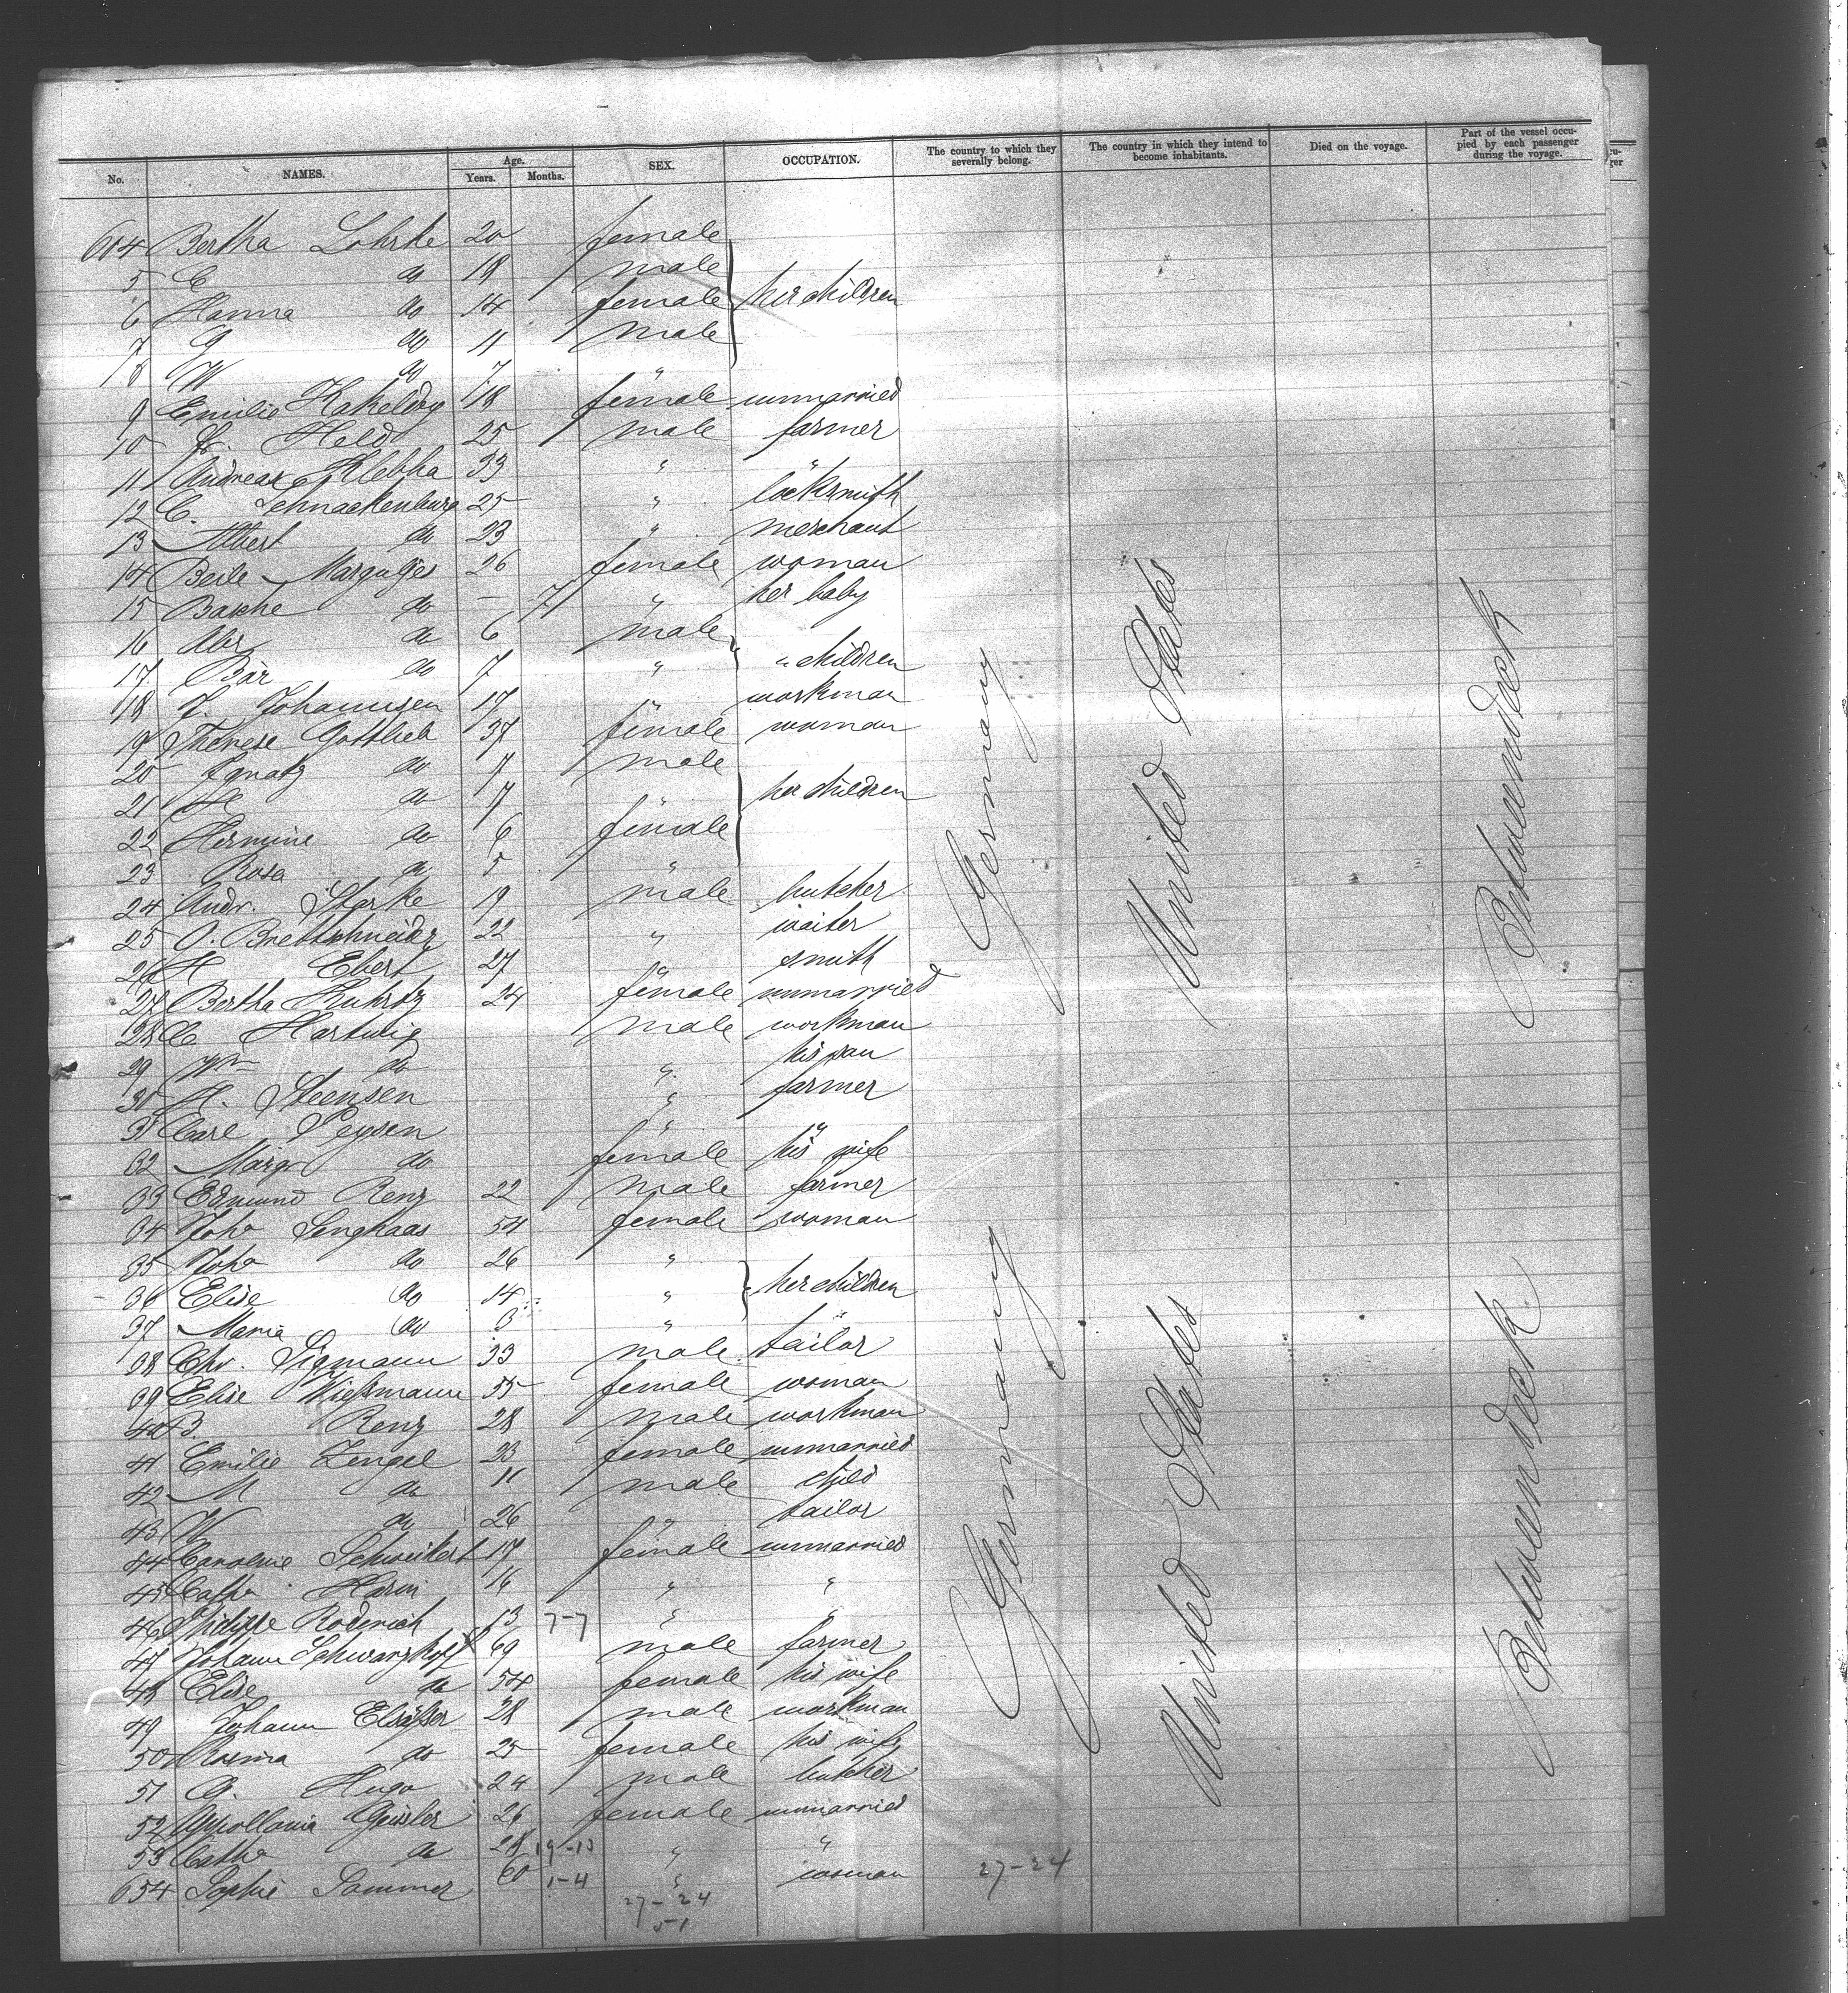 No. NAMES. Age. Years. Months. SEX. OCCUPATION. The country to which they severally belong. The country in which they intend to become inhabitants. Died on the voyage. Part of the vessel occupied by each passenger during the voyage.
604 Bertha Lohrke 20 female
5 C do 18 male
6 Hanna do 14 female her children
7 G do 11 male
8 W do 7 "
9 Emilie 18 female unmarried
10 Fr. Held 25 male farmer
11 Andreas Klebha 33 " "
12 C. Schnackenburg 25 " locksmith
13 Albert do 23 " merchant
14 Beile Margulies 26 female woman
15 Basche do - 7 " her baby
16 do 6 male
17 Bär do 7 " " children
18 J. Johannsen 17 " workman
19 Therese Gottlieb 37 female woman
20 Ignatz do 7 male
21 H do 7 " her children
22 Hermine do 6 female
23 Rosa do 5 "
24 Andr. Starke 19 male butcher
25 O. Brettschneider 22 " waiter
26 H Ebert 27 " smith
27 Bertha Kuhrtz 24 female unmarried
28 C Hartwig male workman
29 Wm do " his son
30 H. Steensen " farmer
31 Carl Peysen " "
32 Margr do female his wife
33 Edmund Renz 22 male farmer
34 Joha Senghaas 54 female woman
35 Joha do 26 "
36 Elise do 14 " her children
37 Maria do " "
38 Chr. Sigmann 33 male tailor
39 Elise Wießmann 55 female woman
40 B. Renz 28 male workman
41 Emilie Zengel 23 female unmarried
42 M do 11 male child
43 W do 26 " tailor
44 Caroline Schweikert 17 female unmarried
45 Catha 16 " "
46 Philippe Roderich 13 7-7 " "
47 Johann Schwarzkopf 69 male farmer
48 Elise do 54 female his wife
49 Johann Elsäßer 28 male workman
50 Rosina do 25 female his wife
51 G. Hugo 24 male butcher
52 Appollonia Geissler 26 female unmarried
53 Catha do 28 19-10 " "
654 Sophie Sommer 60 1-4 " woman
27-24 27-24
51
Germany United States Betweendeck
Germany United States Betweendeck